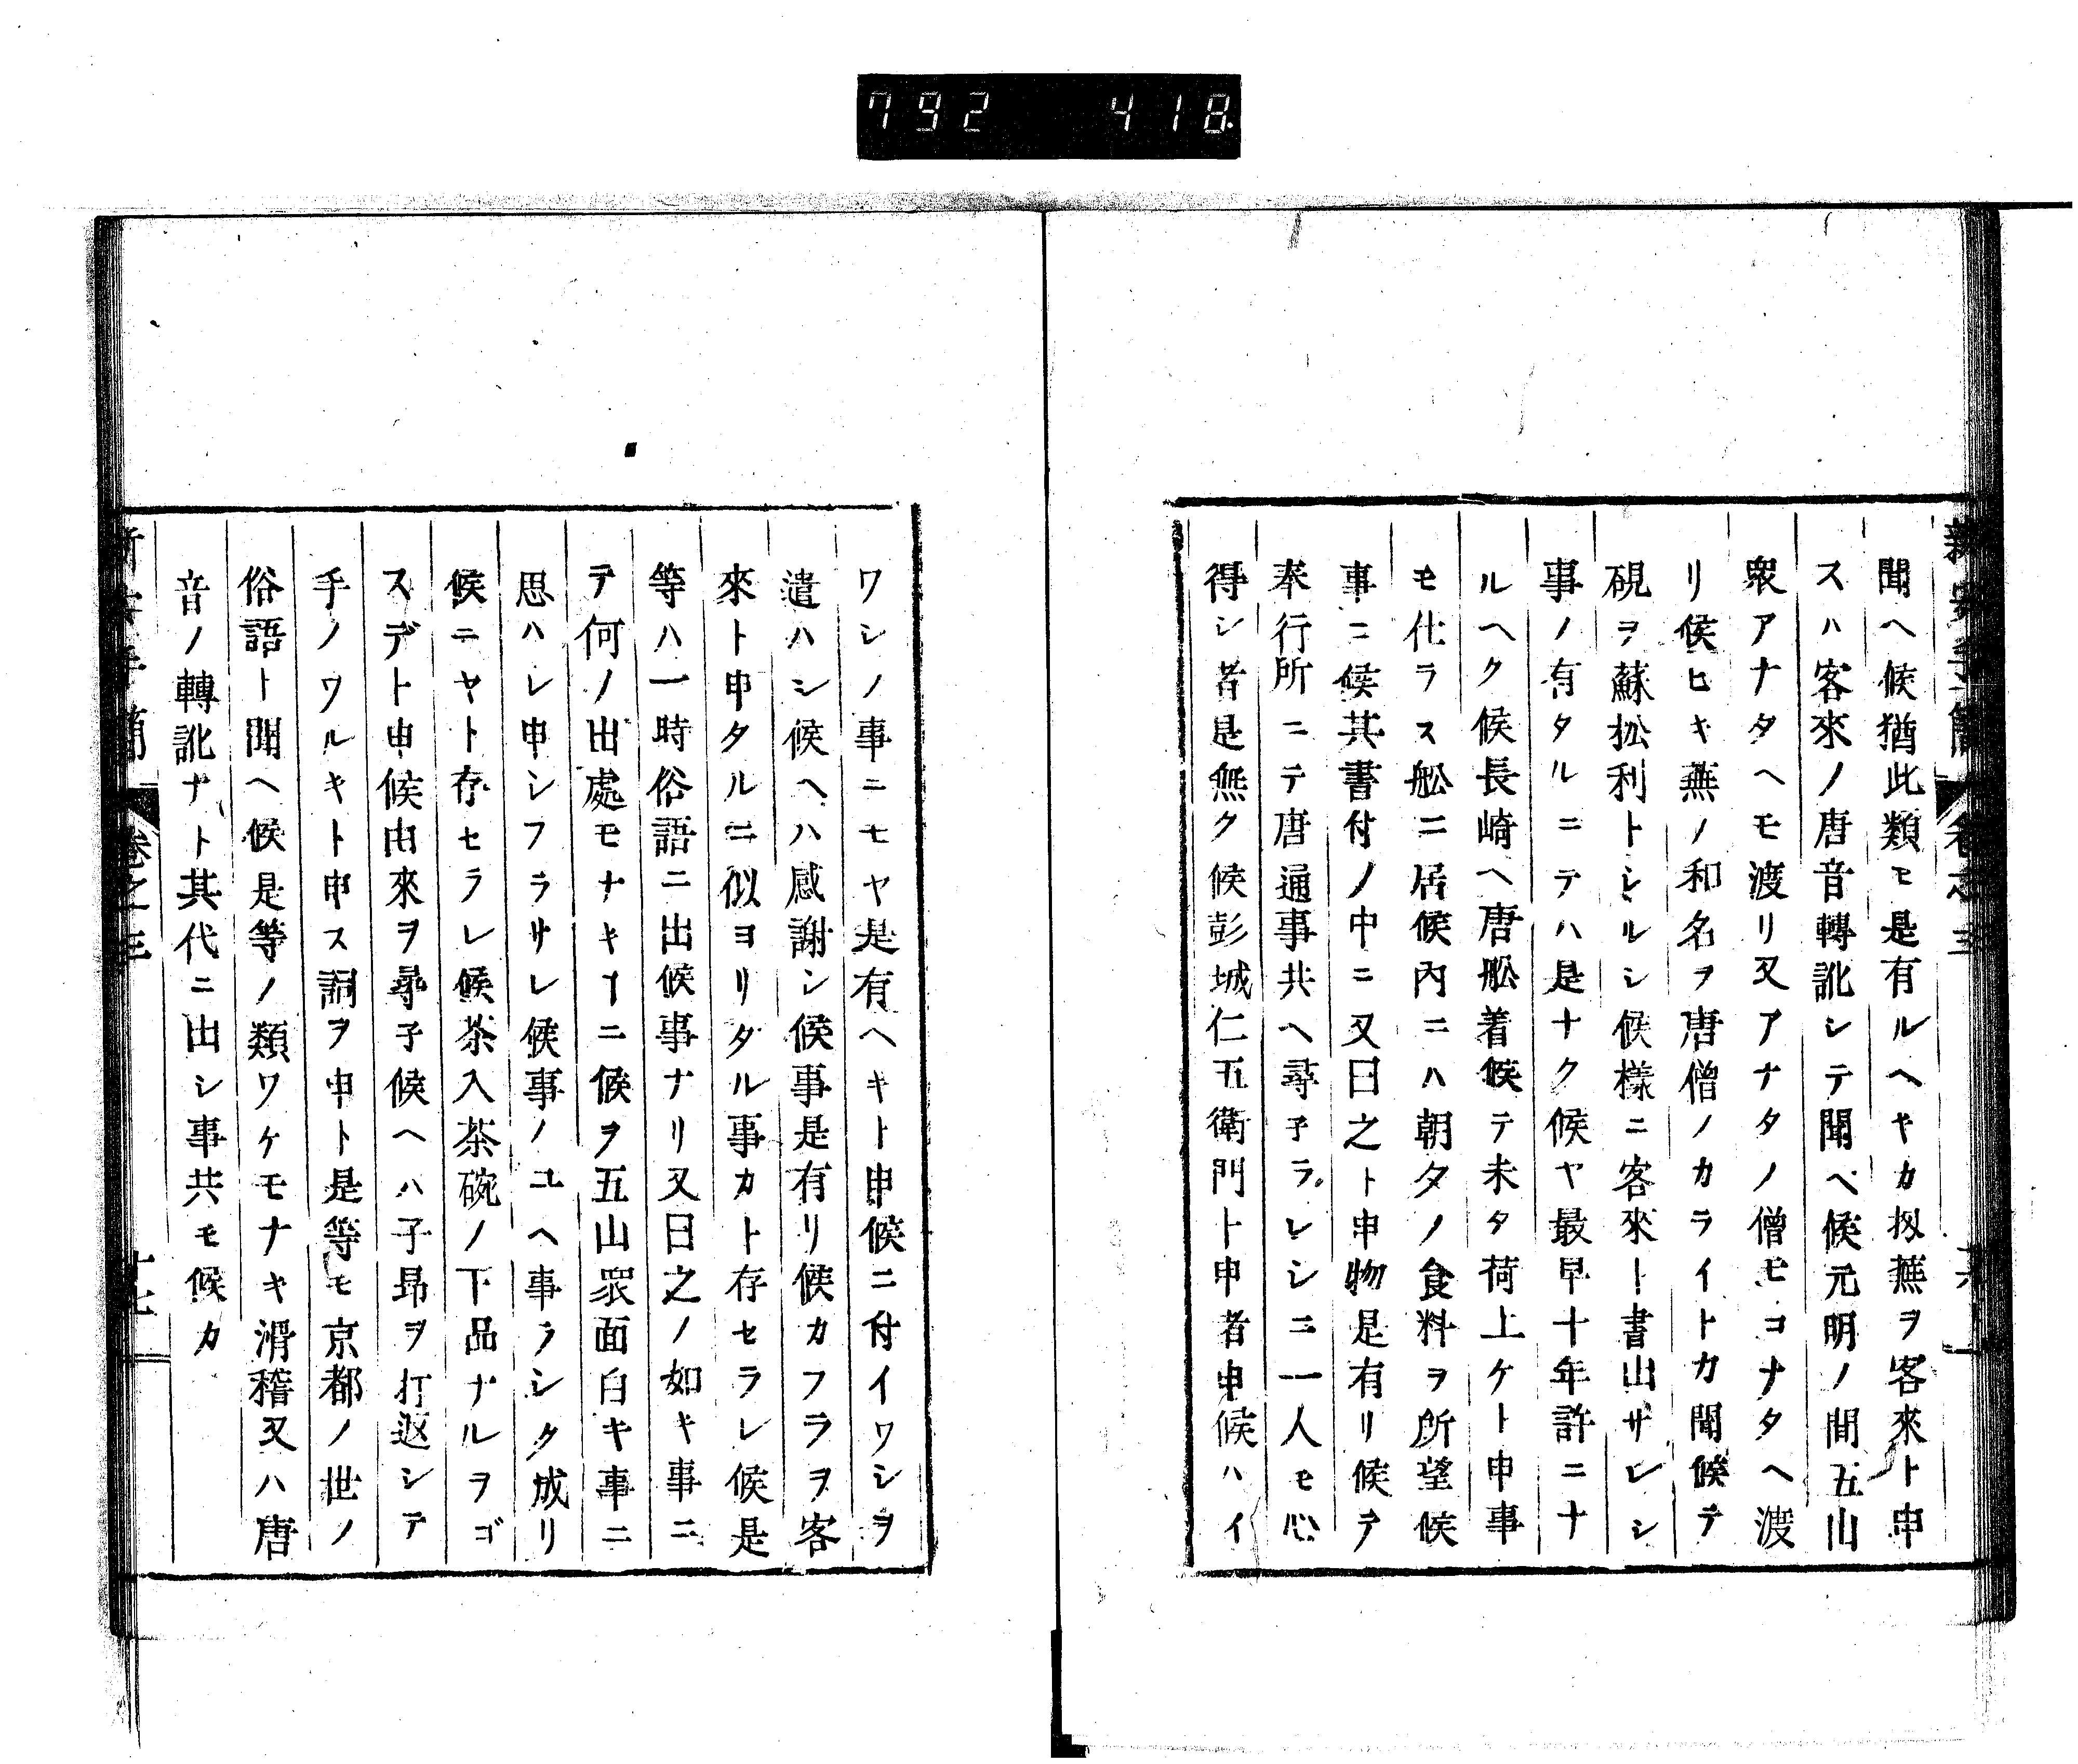 792 418
新安手簡 卷之三 十六
聞ヘ候猶此類モ是有ルヘキカ扨蕪ヲ客來ト申
スハ客來ノ唐音轉訛シテ聞ベ候元明ノ間五山
衆アナタヘモ渡リ又アナタノ僧モコナタヘ渡
リ候ヒキ蕪ノ和名ヲ唐僧ノカライトカ聞候テ
硯ヲ蘇松利トシルシ候樣ニ客來ト書出サレシ
事ノ有タルニテハ是ナク候ヤ最早十年許ニナ
ルヘク候長崎ヘ唐舩着候テ未タ荷上ケト申事
モ仕ラス舩ニ居候內ニハ朝夕ノ食料ヲ所望候
事ニ候其書付ノ中ニ又曰之ト申物是有リ候テ
奉行所ニテ唐通事共ヘ尋子ラレシニ一人モ心
得シ者是無ク候彭城仁五衛門ト申者申候ハイ
ワシノ事ニモヤ是有ヘキト申候ニ付イワシヲ
遣ハシ候ヘハ感謝シ候事是有リ候カフラヲ客
來ト申タルニ似ヨリタル事カト存セラレ候是
等ハ一時俗語ニ出候事ナリ又曰之ノ如キ事ニ
テ何ノ出處モナキヿニ候ヲ五山衆面白キ事ニ
思ハレ申シフラサレ候事ノユヘ事ラシク成リ
候ニヤト存セラレ候茶入茶碗ノ下品ナルヲゴ
スデト申候由來ヲ尋子候ヘハ子昻ヲ打返シテ
手ノワルキト申ス詞ヲ申ト是等モ京都ノ世ノ
俗語ト聞ヘ候是等ノ類ワケモナキ滑稽又ハ唐
音ノ轉訛ナト其代ニ出シ事共モ候カ
新安手簡 卷之三 十七